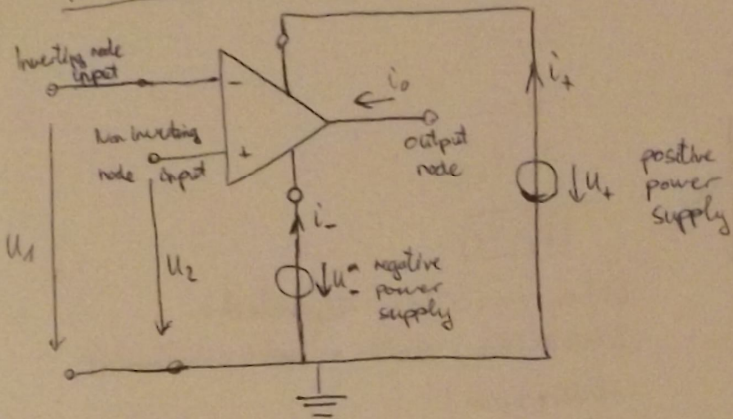 Inverting node
input
-
Non Inverting
node input
+
i₀
output
node
i₊
u₊
positive
power
supply
i₋
u₋
negative
power
supply
u₁
u₂